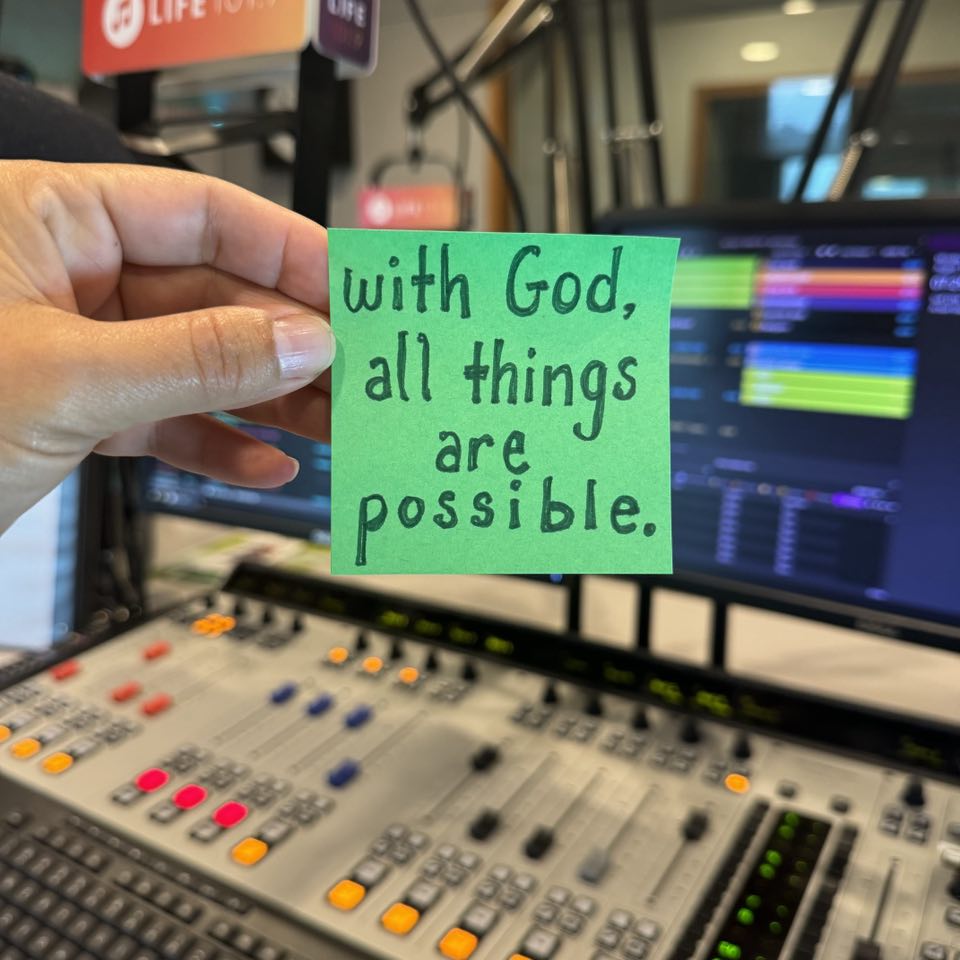 LIFE 101.9
LIFE
with God,
all things
are
possible.